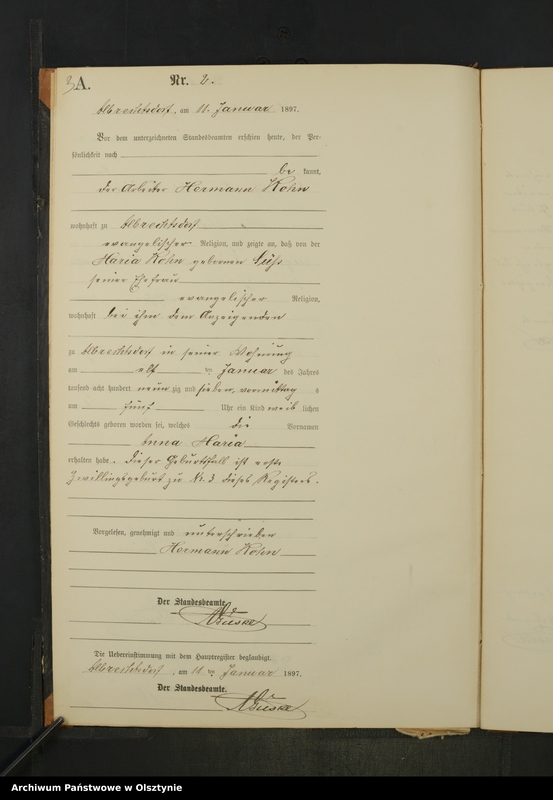 3
A.
Nr. 2.
Albrechtsdorf, am 11. Januar 1897.
Vor dem unterzeichneten Standesbeamten erschien heute, der Per-
sönlichkeit nach
be kannt,
der Arbeiter Hermann Kohn
wohnhaft zu Albrechtsdorf
evangelischer Religion, und zeigte an, daß von der
Maria Kohn geborenen
seiner Ehefrau
evangelischer Religion,
wohnhaft bei ihm dem Anzeigenden
zu Albrechtsdorf in seiner Wohnung
am elf ten Januar des Jahres
tausend acht hundert neun zig und sieben, vormittag s
um fünf Uhr ein Kind weib lichen
Geschlechts geboren worden sei, welches die Vornamen
Anna Maria
erhalten habe. Dieser Geburtsfall ist erste
Zwillingsgeburt zu Nr. 3 dieses Registers.
Vorgelesen, genehmigt und unterschrieben
Hermann Kohn
Der Standesbeamte.
Die Uebereinstimmung mit dem Hauptregister beglaubigt.
Albrechtsdorf, am 11 ten Januar 1897.
Der Standesbeamte.
Archiwum Państwowe w Olsztynie